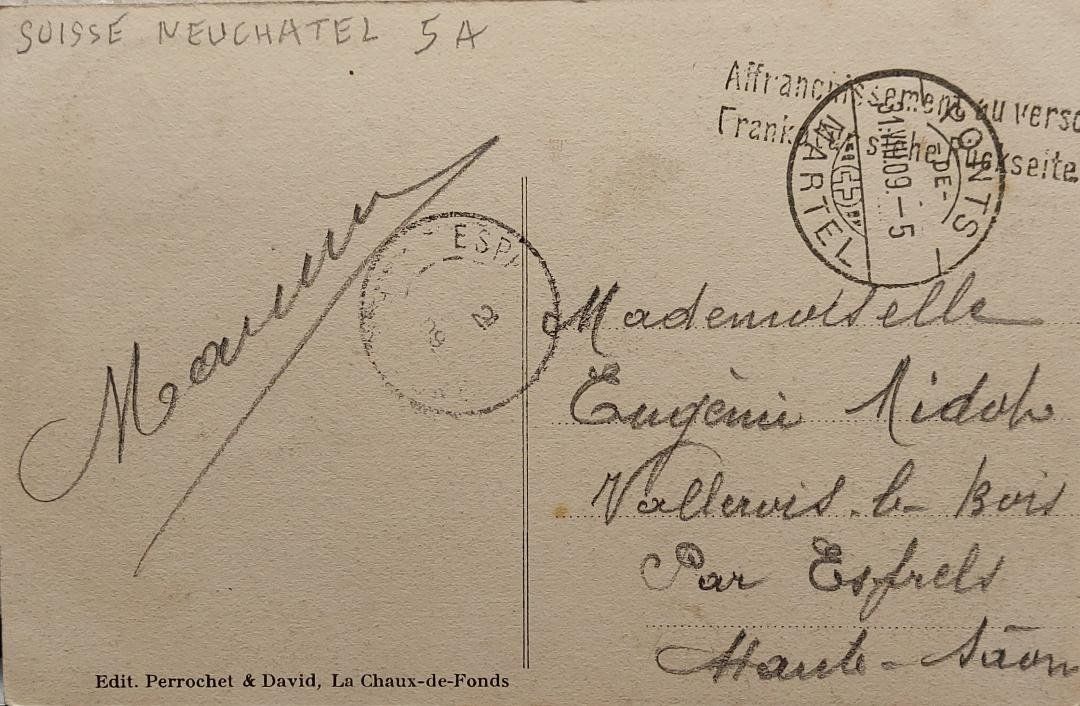 SUISSE NEUCHATEL 5A
Affranchissement au verso
Frankatur siehe Rückseite
PONTS
-DE-
MARTEL
31.VIII.09.-5
ESP
Mademoiselle
Eugènie Midol
Vallerois-le-Bois
Par Esprels
Haute-Saon
Edit. Perrochet & David, La Chaux-de-Fonds